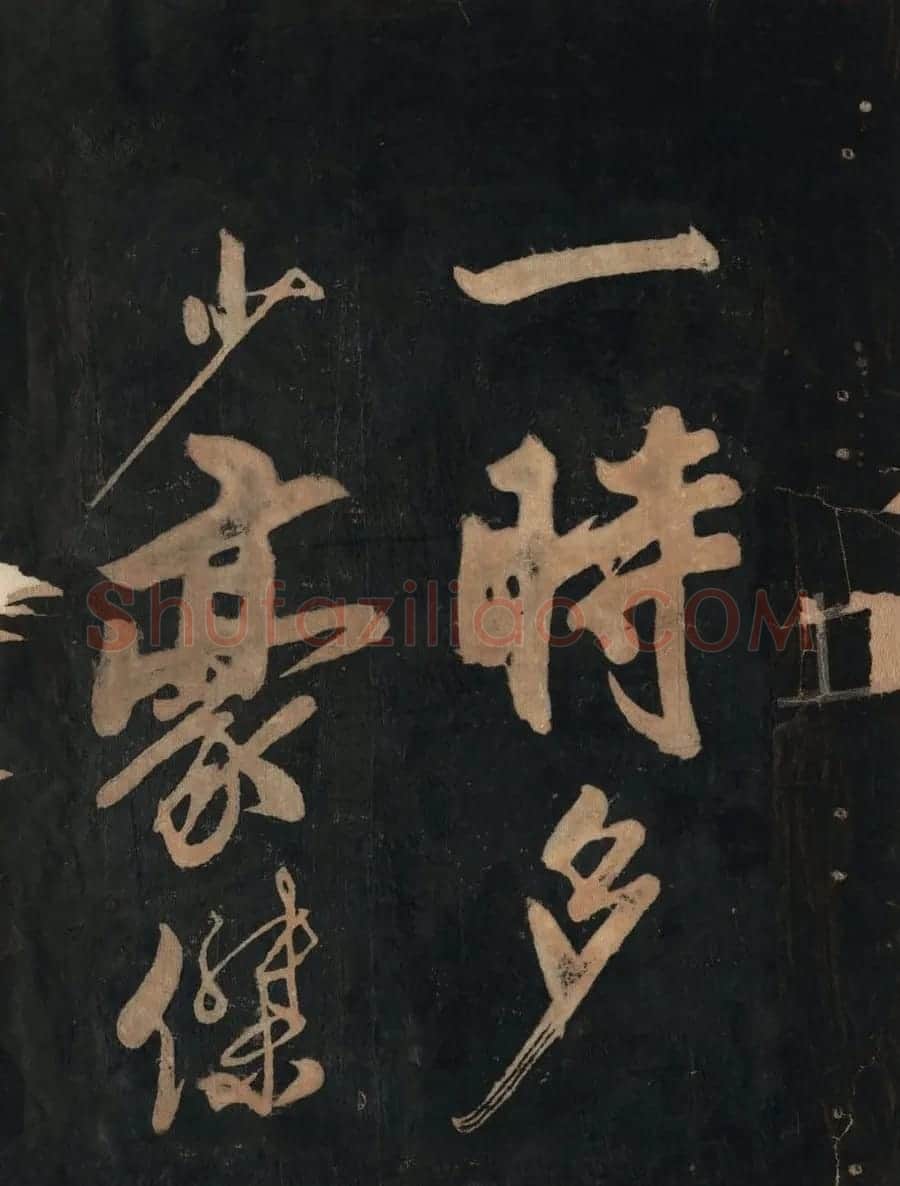 一時多
少豪傑
Shufaziliao.COM